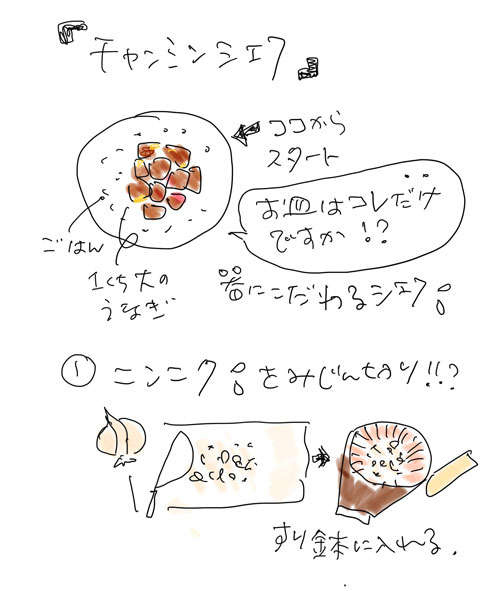 『チャンミンシェフ』
ココから
スタート
お皿はコレだけ
ですか!?
ごはん
1くち大の
うなぎ
器にこだわるシェフ
① ニンニクをみじん切り!!?
すり鉢に入れる.